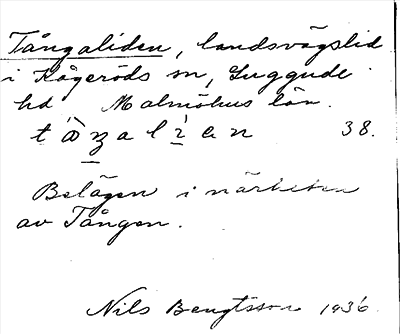 Tångaliden, landsvägslid
i Kågeröds sn, Luggude
hd Malmöhus län.
tåŋalìen 38.
Belägen i närheten
av Tången.
Nils Bengtsson 1936